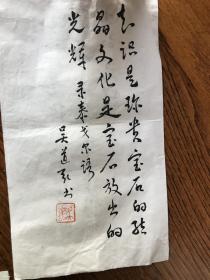 知识是珍贵宝石的结
晶文化是宝石放出的
光辉 录泰戈尔语
吴道弘书